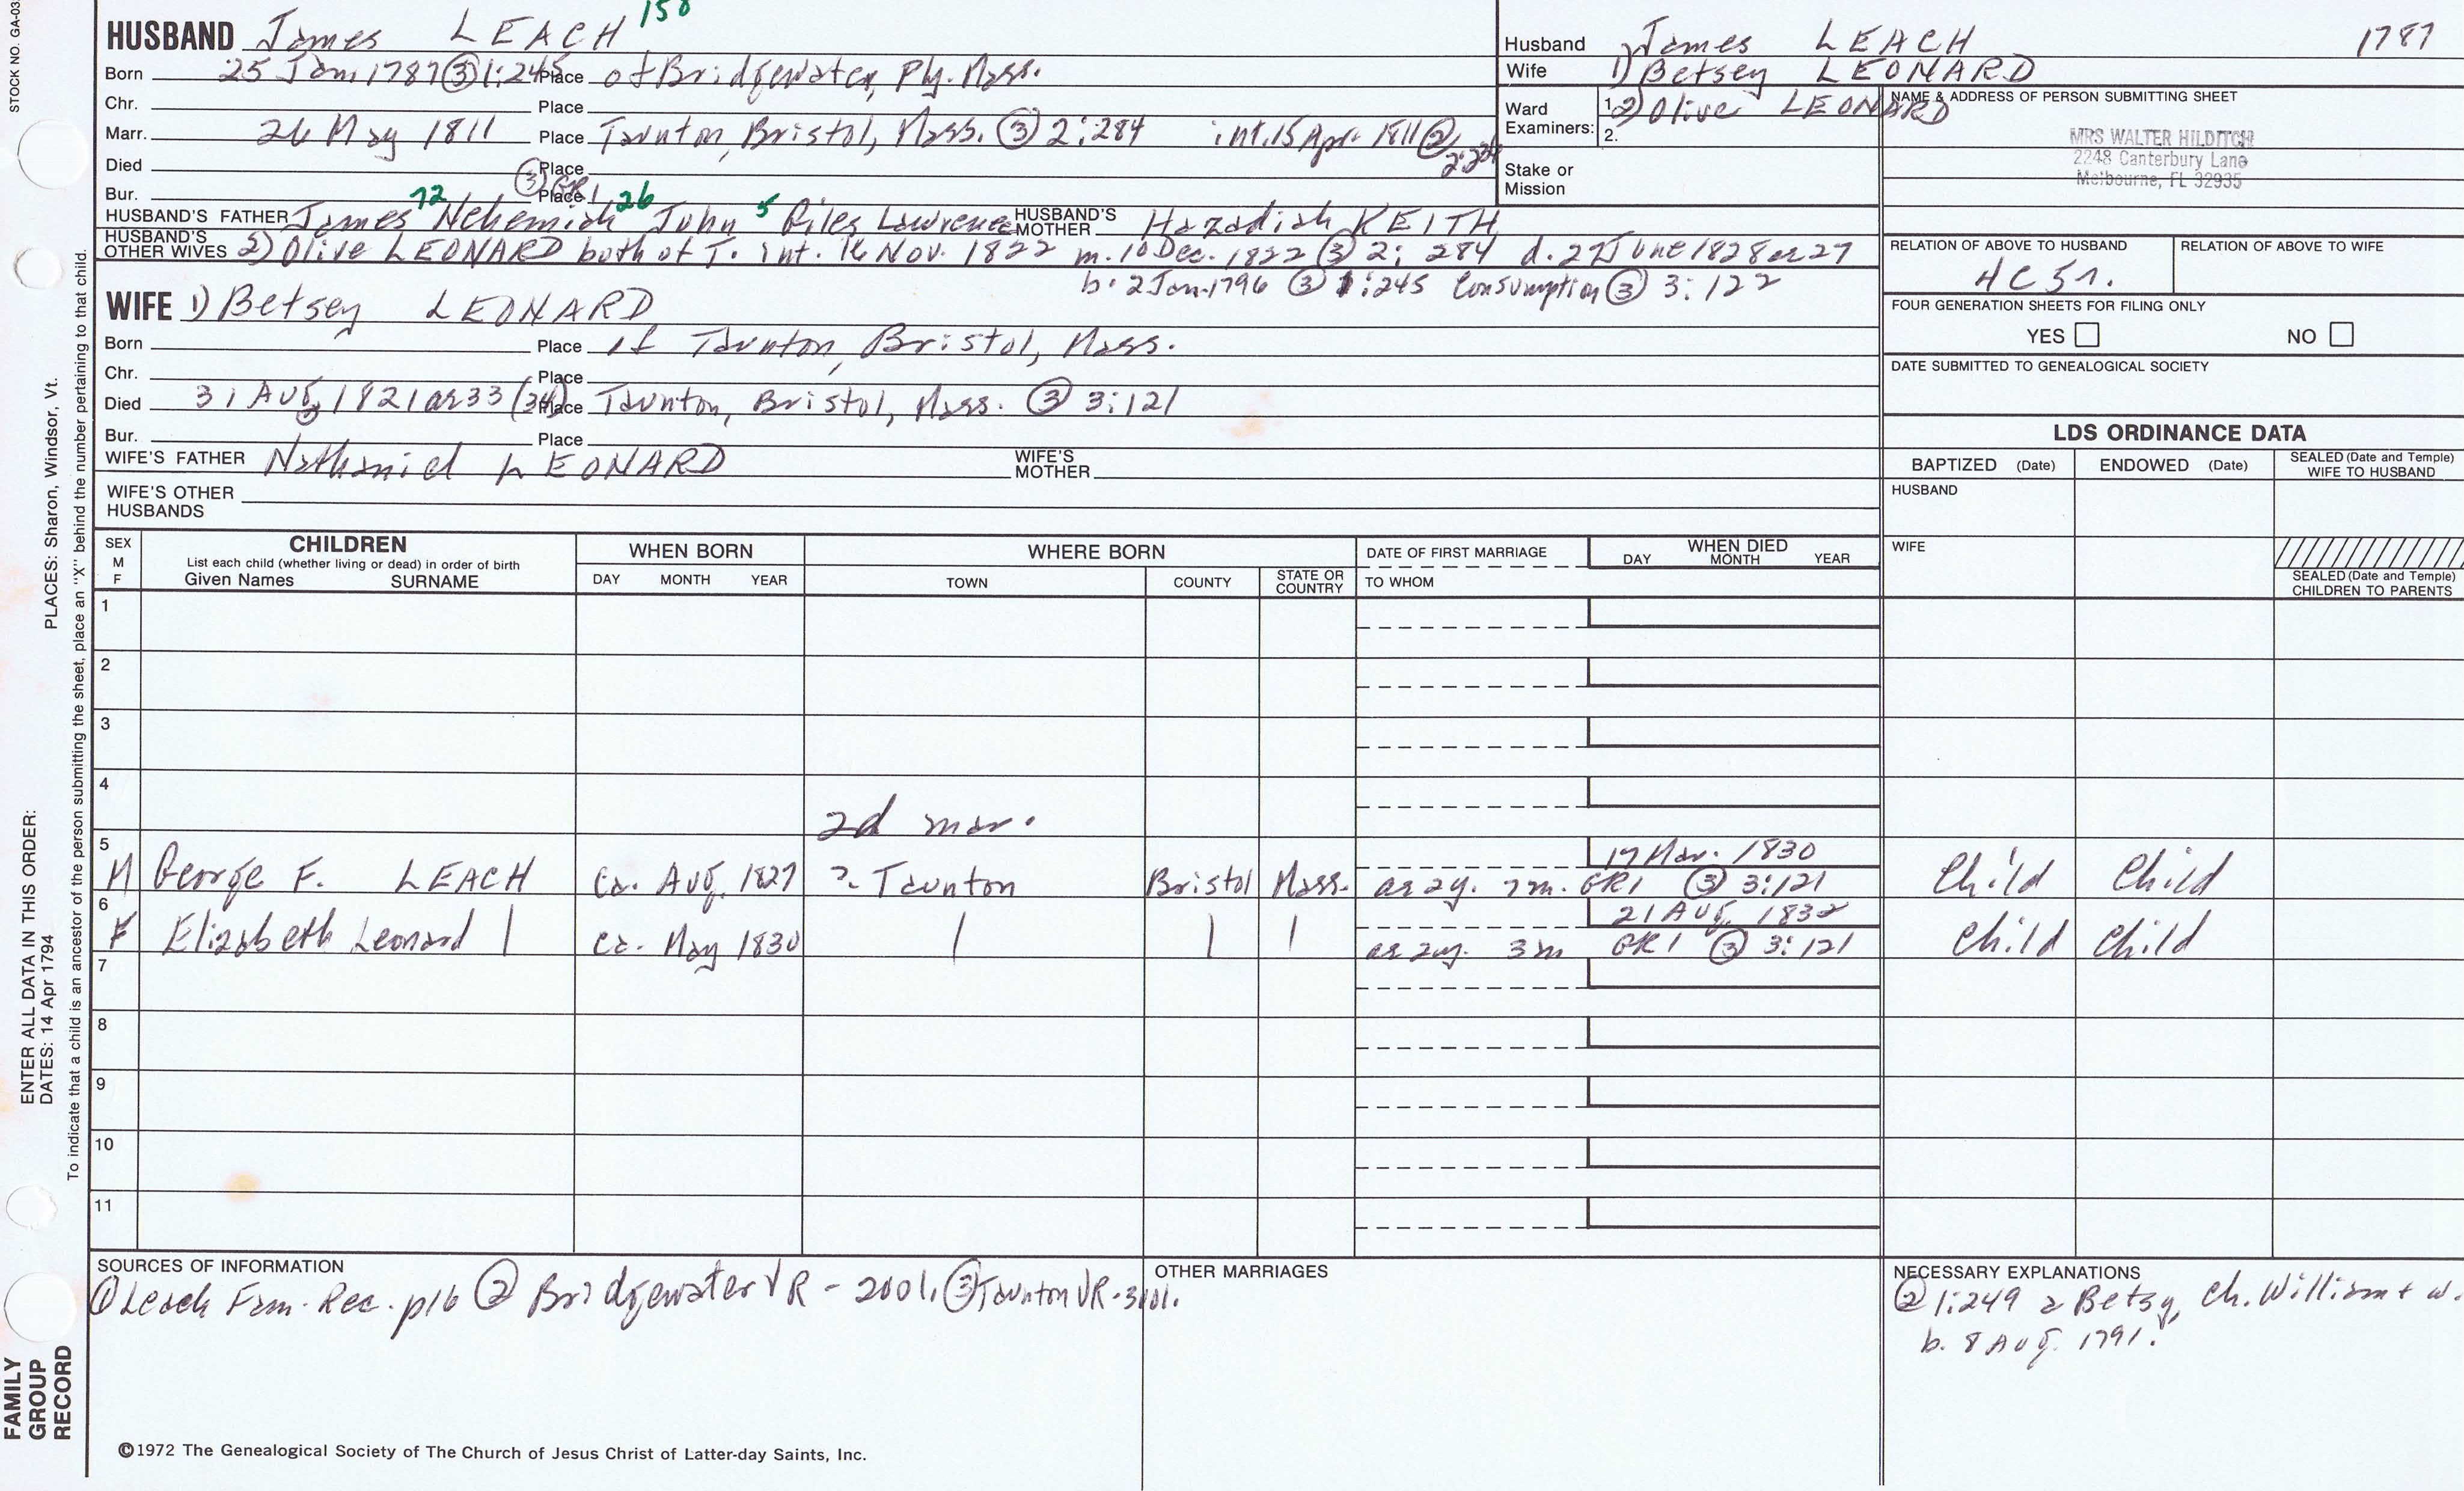 STOCK NO. GA-03
PLACES: Sharon, Windsor, Vt.
ENTER ALL DATA IN THIS ORDER:
DATES: 14 Apr 1794
To indicate that a child is an ancestor of the person submitting the sheet, place an "X" behind the number pertaining to that child.
FAMILY
GROUP
RECORD
HUSBAND James LEACH 150
Born 25 Jan 1787 ③ 1:245 Place of Bridgewater, Ply. Mass.
Chr. Place
Marr. 26 May 1811 Place Taunton, Bristol, Mass. ③ 2:284 int. 15 Apr. 1811 ②
Died Place
Bur. Place ③ GR1
HUSBAND'S FATHER James 72 Nehemiah 26 John 5 Giles Lawrence HUSBAND'S MOTHER Hazadiah KEITH
HUSBAND'S OTHER WIVES 2) Olive LEONARD both of T. int. 16 Nov. 1822 m. 10 Dec. 1822 ③ 2:284 d. 27 June 1828 ae 27
b. 2 Jan. 1796 ③ 1:245 Consumption ③ 3:122
WIFE 1) Betsey LEONARD
Born Place of Taunton, Bristol, Mass.
Chr. Place
Died 31 Aug 1821 ae 33 (34) Place Taunton, Bristol, Mass. ③ 3:121
Bur. Place
WIFE'S FATHER Nathaniel LEONARD WIFE'S MOTHER
WIFE'S OTHER HUSBANDS
Husband James LEACH 1787
Wife 1) Betsey LEONARD
Ward Examiners: 1. 2) Olive LEONARD
2.
Stake or Mission
NAME & ADDRESS OF PERSON SUBMITTING SHEET
MRS WALTER HILDITCH
2248 Canterbury Lane
Melbourne, FL 32935
RELATION OF ABOVE TO HUSBAND RELATION OF ABOVE TO WIFE
4C5r.
FOUR GENERATION SHEETS FOR FILING ONLY
YES NO
DATE SUBMITTED TO GENEALOGICAL SOCIETY
LDS ORDINANCE DATA
BAPTIZED (Date) ENDOWED (Date) SEALED (Date and Temple) WIFE TO HUSBAND
HUSBAND
WIFE
SEALED (Date and Temple) CHILDREN TO PARENTS
SEX M F
CHILDREN
List each child (whether living or dead) in order of birth
Given Names SURNAME
WHEN BORN
DAY MONTH YEAR
WHERE BORN
TOWN COUNTY STATE OR COUNTRY
DATE OF FIRST MARRIAGE
TO WHOM
WHEN DIED
DAY MONTH YEAR
1
2
3
4
2d mar.
5
17 Mar. 1830
M George F. LEACH ca. Aug. 1827 ?. Taunton Bristol Mass. ae 2y. 7m. GR1 ③ 3:121 Child Child
6
21 Aug. 1832
F Elizabeth Leonard | ca. May 1830 | | | ae 2y. 3m GR1 ③ 3:121 Child Child
7
8
9
10
11
SOURCES OF INFORMATION
① Leach Fam. Rec. p16 ② Bridgewater VR - 2001. ③ Taunton VR - 3101.
OTHER MARRIAGES
NECESSARY EXPLANATIONS
② 1:249 a Betsy, ch. William + w.
b. 8 Aug. 1791.
©1972 The Genealogical Society of The Church of Jesus Christ of Latter-day Saints, Inc.